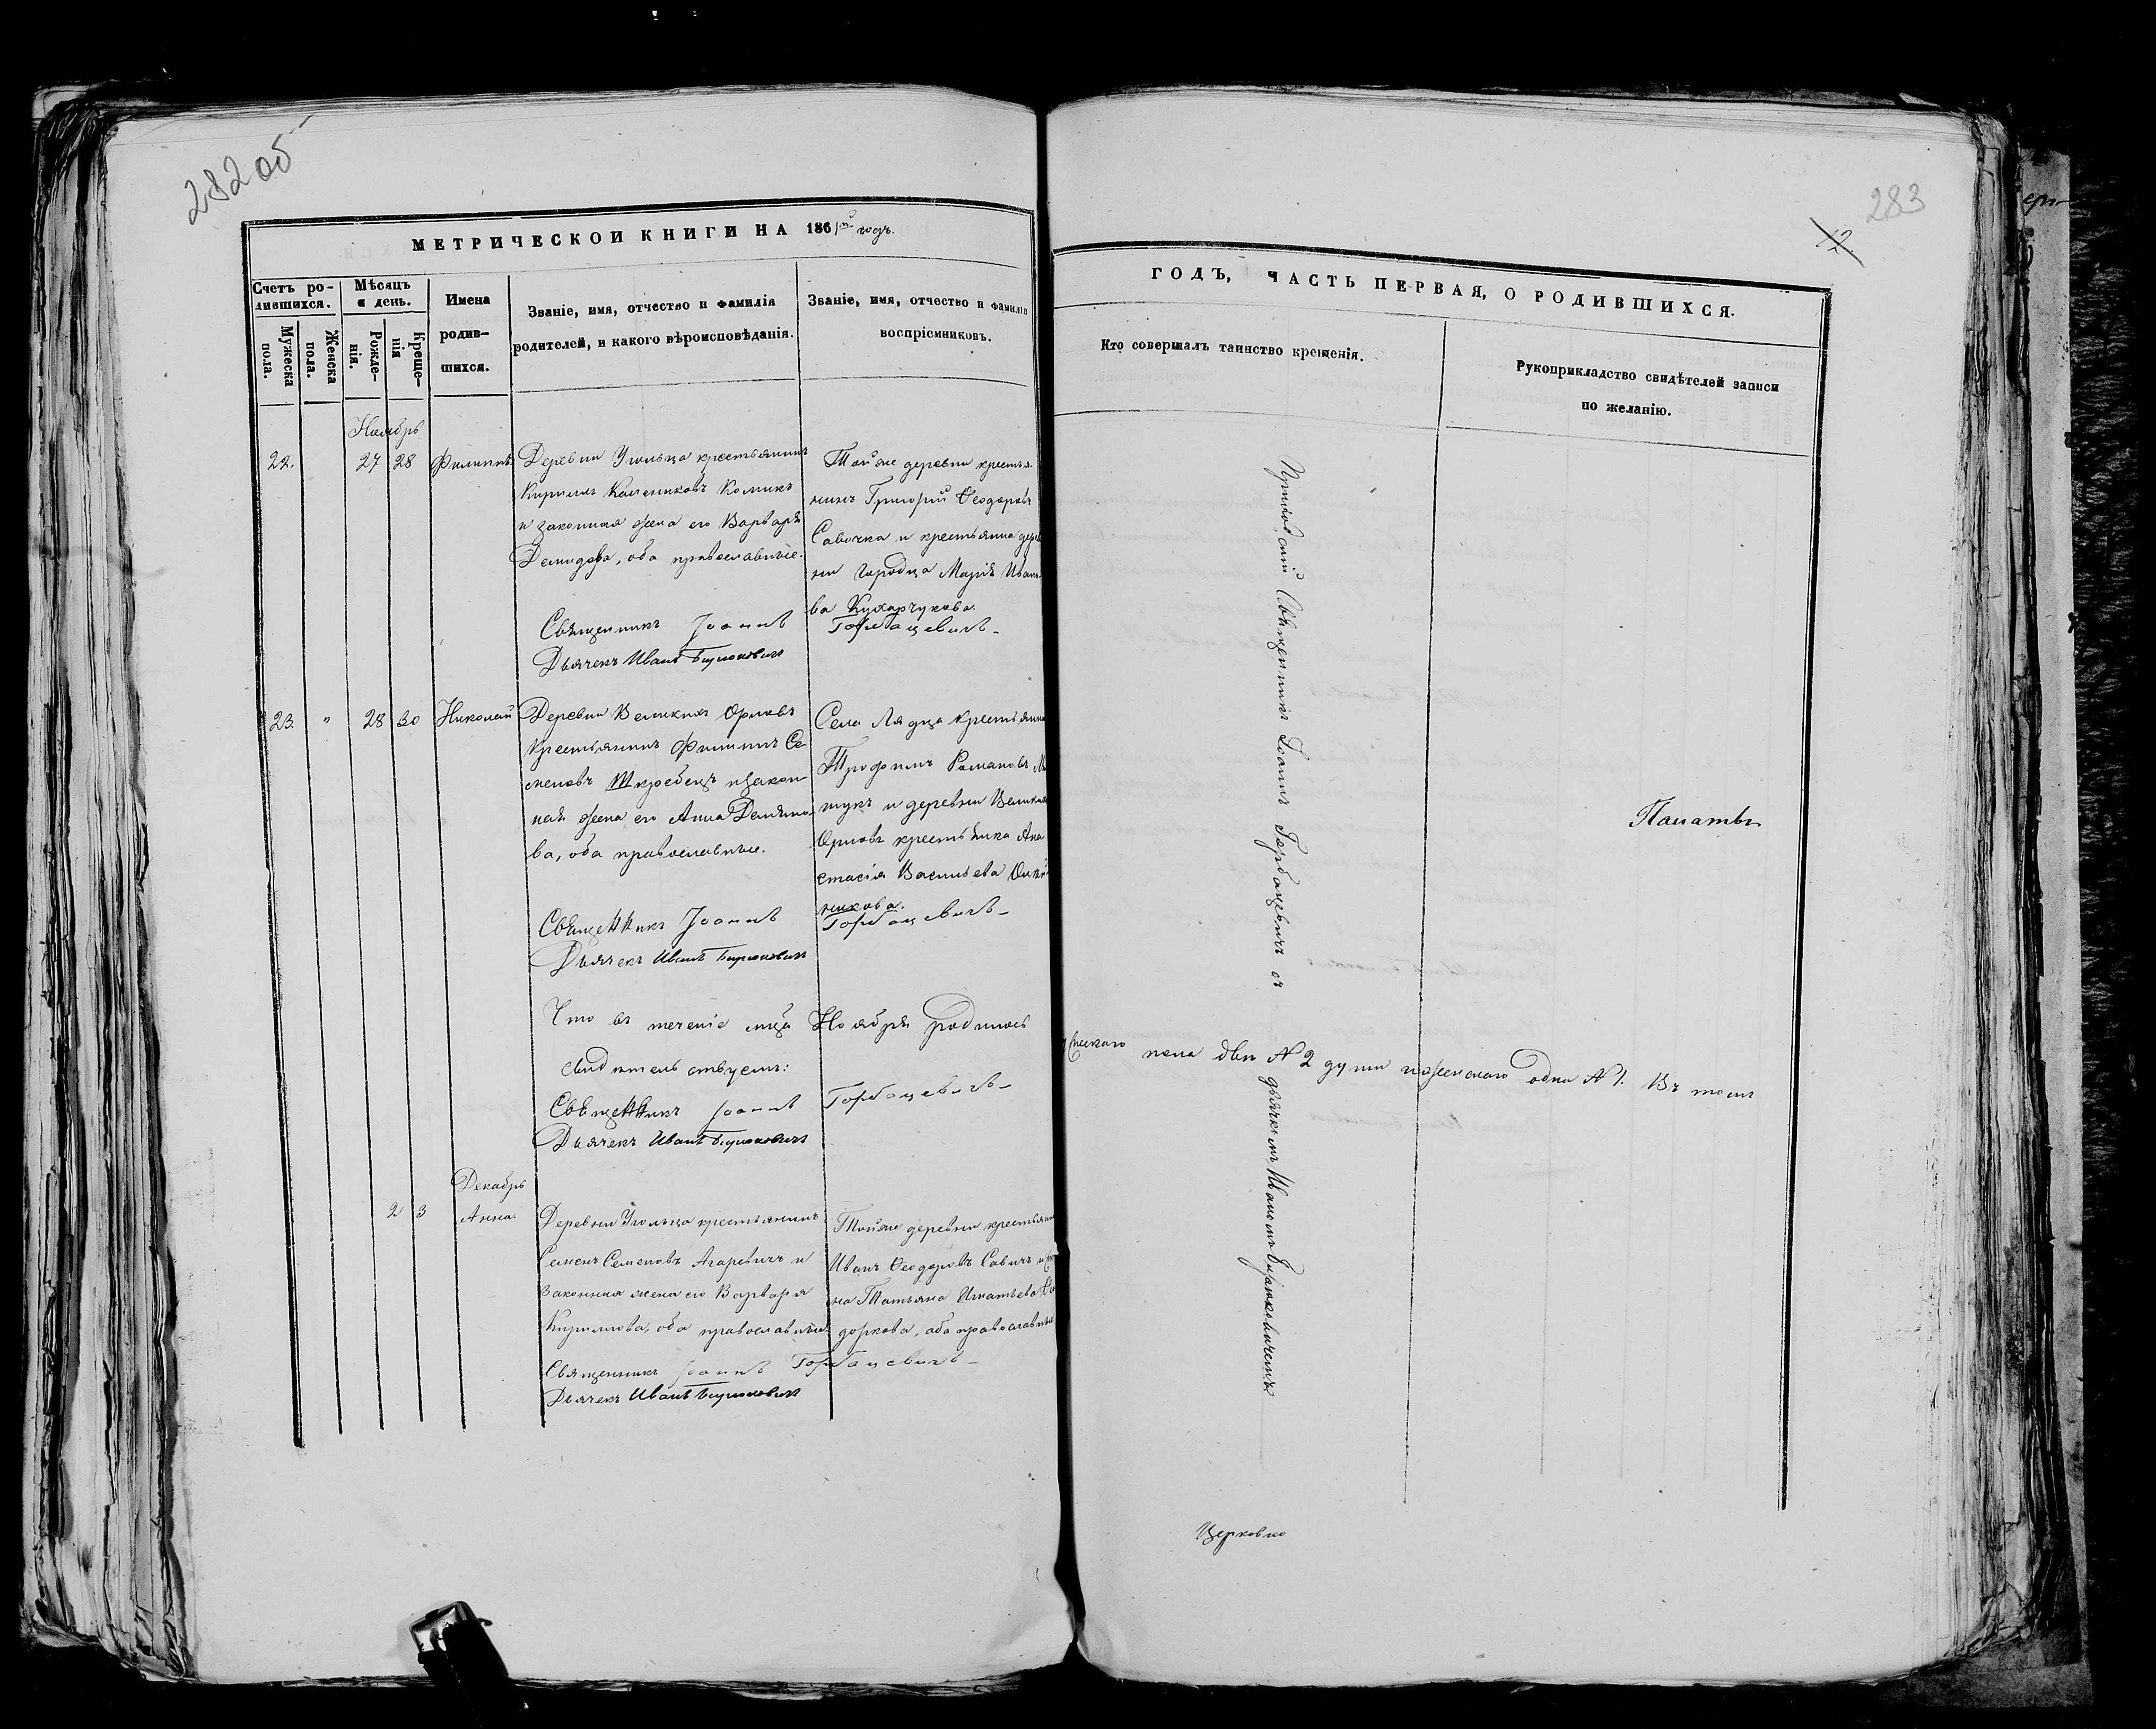 282 об
МЕТРИЧЕСКОЙ КНИГИ НА 1861й годъ.
Счетъ ро-
дившихся.
Мужеска
пола.
Женска
пола.
Мѣсяцъ
и день.
Рожде-
нія.
Креще-
нія
Имена
родив-
шихся.
Званіе, имя, отчество и фамилія
родителей, и какого вѣроисповѣданія.
Званіе, имя, отчество и фамилія
воспріемниковъ.
Ноябрь
22.
27
28
Филиппъ
Деревни Угольца крестьянинъ
Кириллъ
и законная жена его Варвара
Демидова, оба православные.
Тойже деревни крестья-
нинъ Григорій Ѳеодоровъ
Савочка и крестьянка дерев
ни Городца Марія Ивано
ва Кухарчукова.
Священникъ Іоаннъ Горбацевичъ
Дьячекъ Иванъ Бирюковичъ
23
"
28
30
Николай
Деревни Великихъ Орловъ
Крестьянинъ Филиппъ Се-
меновъ Шкребецъ и закон-
ная жена его Анна Демьяно-
ва, оба православные.
Села Лядца Крестьянинъ
Трофимъ Романовъ
и деревни Великихъ
Орловъ крестьянка Ана
стасія Васильева
никова.
Священникъ Іоаннъ Горбацевичъ
Дьячекъ Иванъ Бирюковичъ
Что въ теченіе мѣсяца Ноября родилось
свидѣтельствуемъ:
Священникъ Іоаннъ Горбацевичъ
Дьячекъ Иванъ Бирюковичъ
Декабрь
2
3
Анна.
Деревни Угольца крестьянинъ
Семенъ Семеновъ Агаревичъ и
Законная жена его Варвара
Кириллова, оба православные
Тойже деревни крестьянинъ
Иванъ Ѳеодоровъ Савичъ и
на Татьяна Игнатьева
доркова, оба православные
Священникъ Іоаннъ Горбацевичъ
Дьячекъ Иванъ Бирюковичъ
283
12
ГОДЪ, ЧАСТЬ ПЕРВАЯ, О РОДИВШИХСЯ.
Кто совершалъ таинство крещенія.
Рукоприкладство свидѣтелей записи
по желанію.
Приходскій Священникъ Іоаннъ Горбацевичъ съ дьячкомъ Иваномъ Бирюковичемъ
пола двѣ № 2 души и женскаго одна № 1. Въ томъ
Церковно